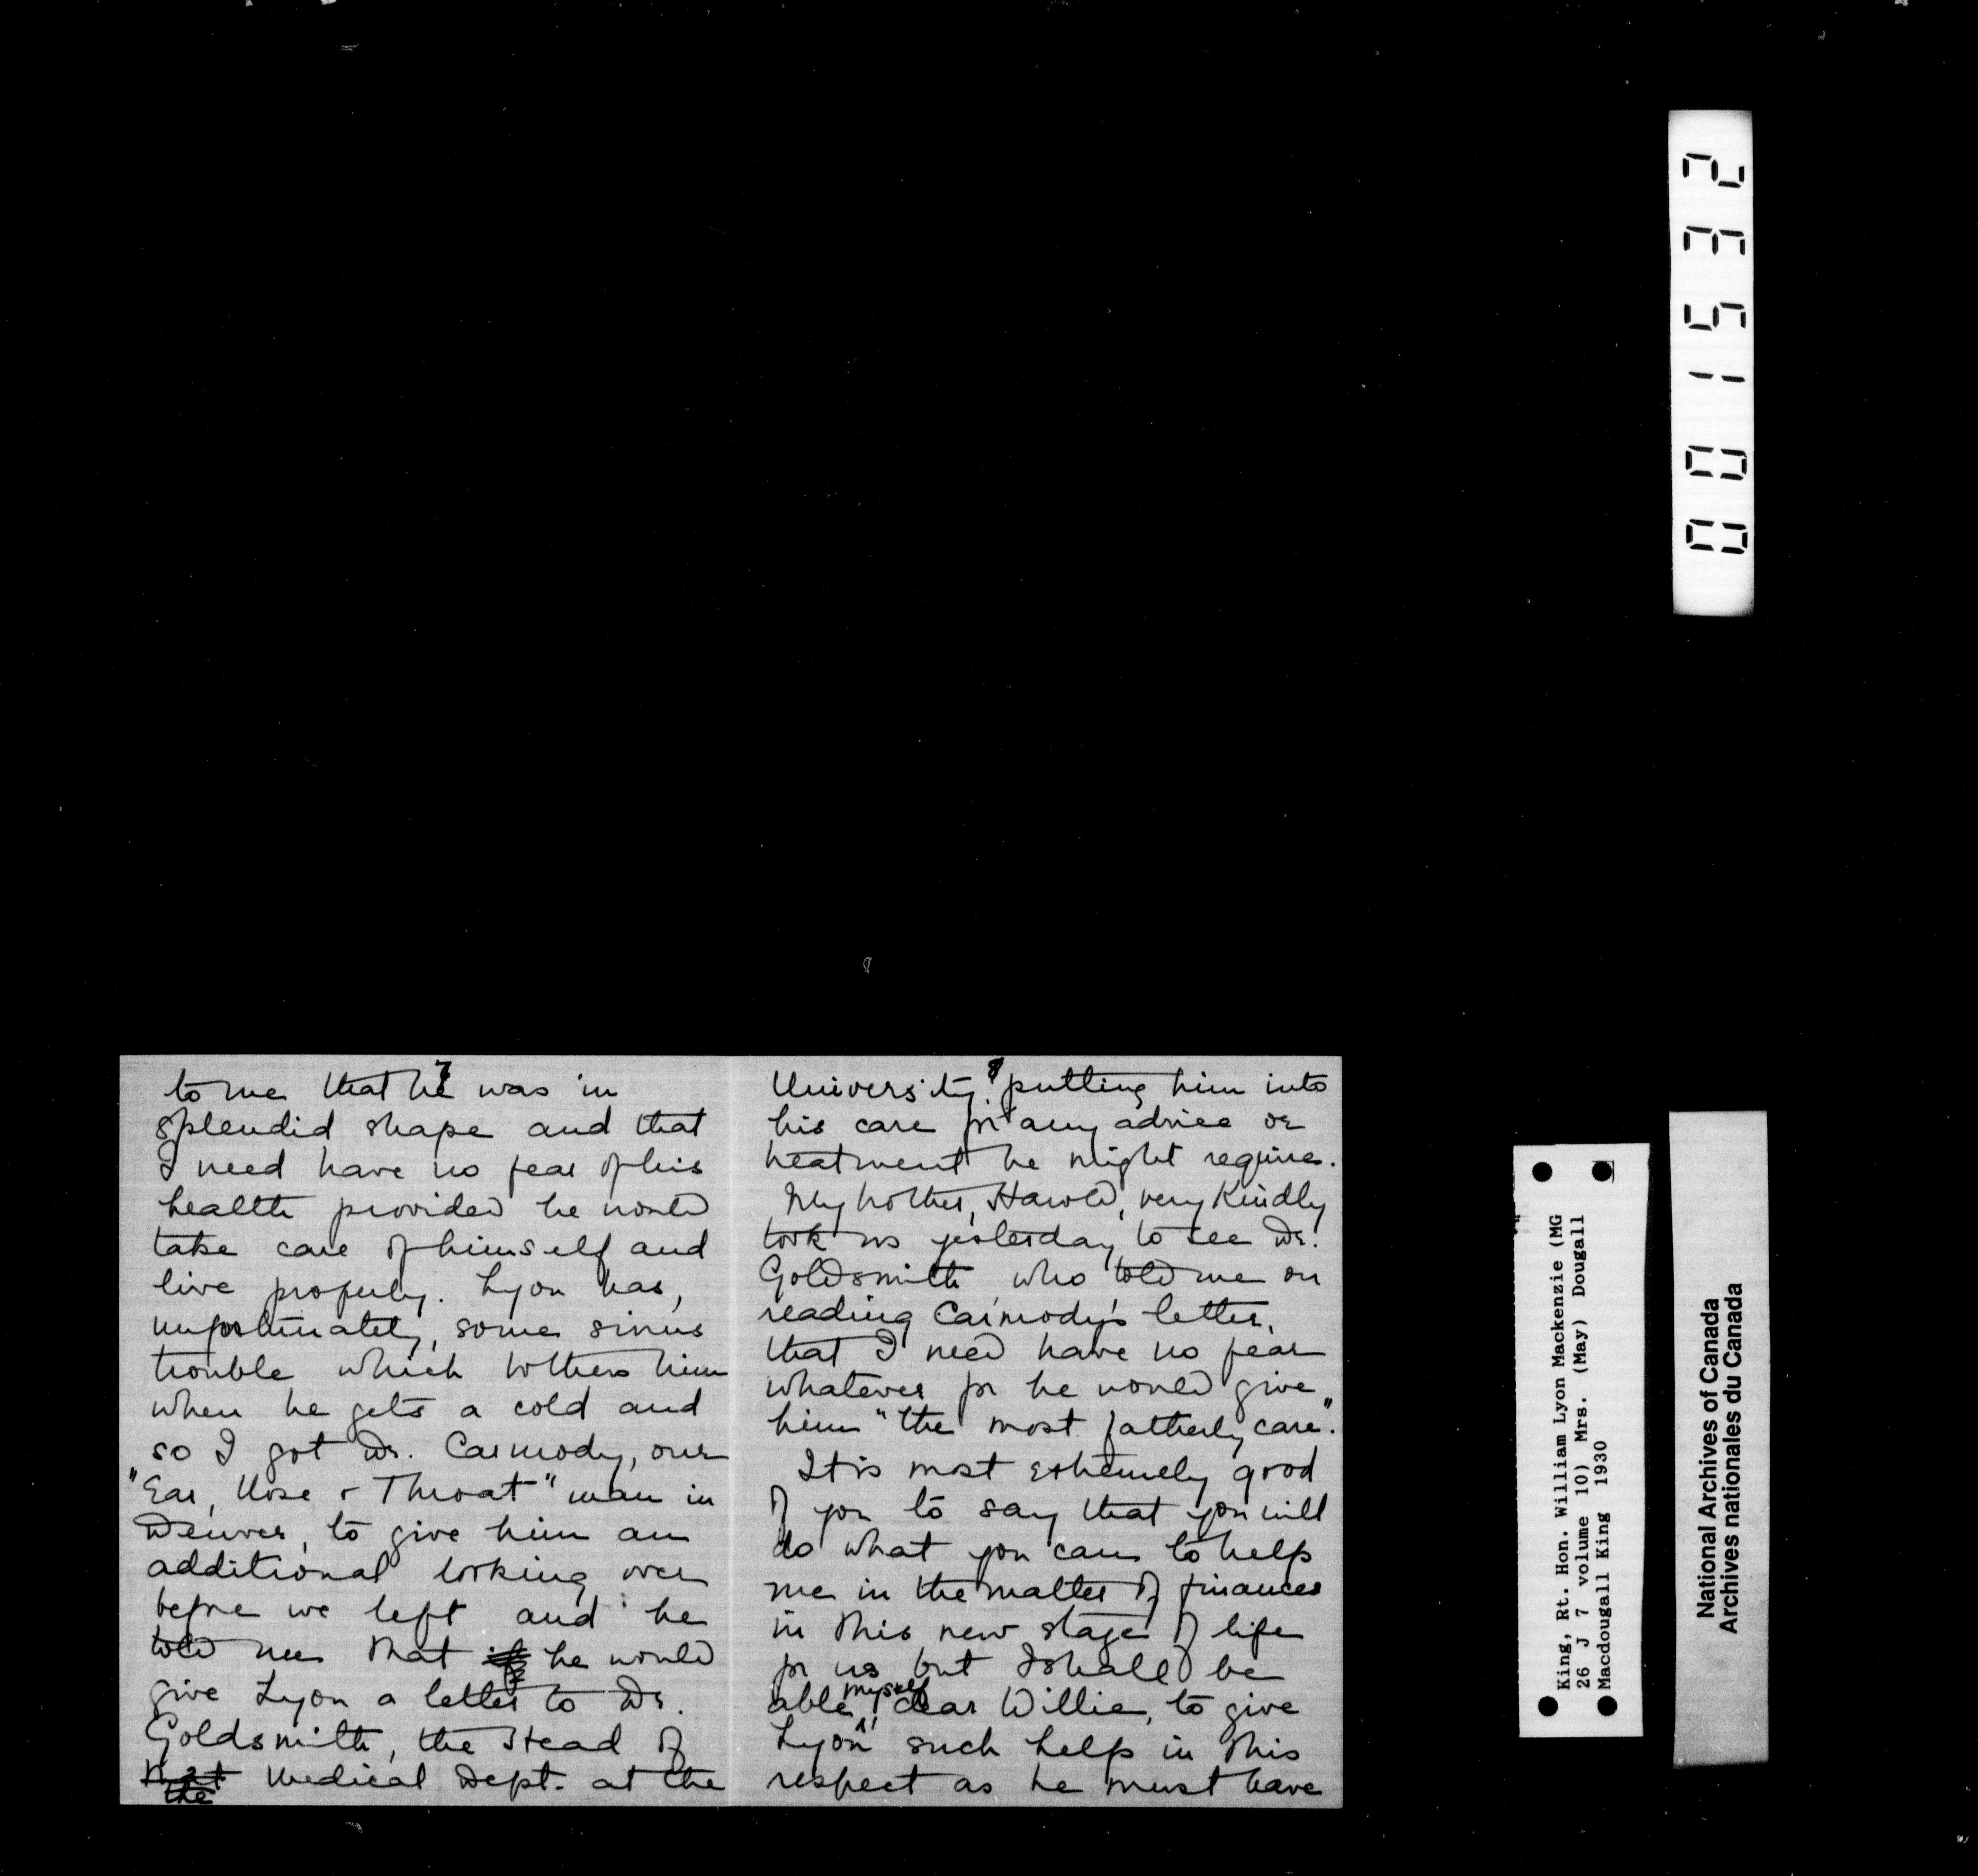 7
to me that he was in
splendid shape and that
I need have no fear of his
health provided he would
take care of himself and
live properly. Lyon has,
unfortunately, some sinus
trouble which bothers him
when he gets a cold and
so I got Dr. Carmody, our
"Ear, Nose & Throat" man in
Denver, to give him an
additional looking over
before we left and he
told me that if he would
give Lyon a letter to Dr.
Goldsmith, the Head of
that the Medical Dept. at the
8
University, putting him into
his care for any advice or
treatment he might require.
My brother, Harold, very kindly
took us yesterday to see Dr.
Goldsmith who told me on
reading Carmody's letter,
that I need have no fear
whatever for he would give
him "the most fatherly care".
It is most extremely good
of you to say that you will
do what you can to help
me in the matter of finances
in this new stage of life
for us but I shall be
able myself, dear Willie, to give
Lyon such help in this
respect as he must have
0001532
King, Rt. Hon. William Lyon Mackenzie (MG
26 J 7 volume 10) Mrs. (May) Dougall
Macdougall King 1930
National Archives of Canada
Archives nationales du Canada